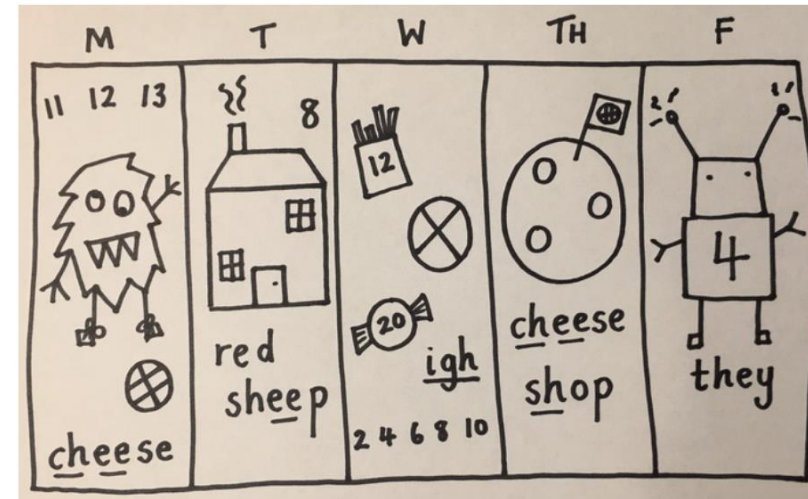 M T W TH F
11 12 13
cheese
8
red
sheep
12
20
igh
2 4 6 8 10
cheese
shop
4
they